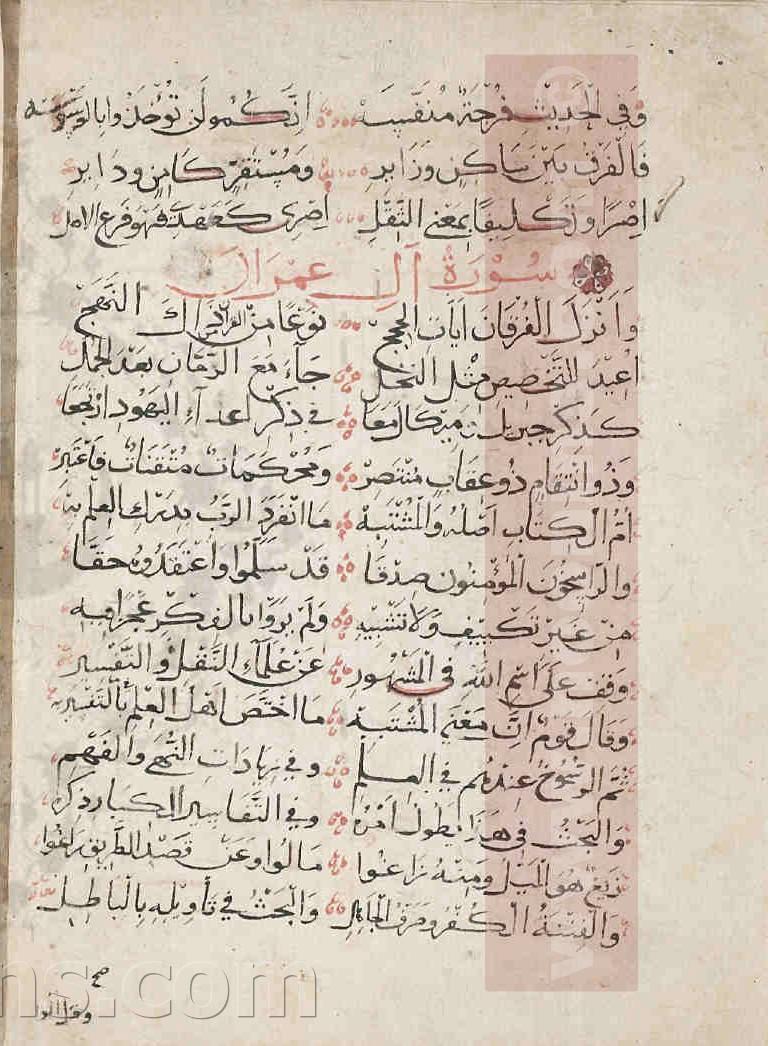 وَفِي الْحَدِيثِ فُرْجَةٌ مُنَفِّسَه إِنَّكُمُو لَنْ تُؤْخَذُوا بِالْوَسْوَسَه
فَالْفَرْقُ بَيْنَ سَاكِنٍ وَزَايِرِ وَمُسْتَقِرٍّ كَامِنٍ وَدَايِرِ
اِصْرًا وَتَكْلِيفًا بِمَعْنَى الثِّقَلِ اِصْرِى كَعَهْدِى فَهُوَ فَرْعُ الاصل
سُوْرَةُ آلِ عِمْرَانَ
وَاَنْزَلَ الْفُرْقَانَ ايَاتِ الْحُجَجْ نَوْعًا مِنَ الْقُرْآنِ النَّهَجْ
اعِيْدَ لِلتَّخْصِيصِ مِثْلَ النَّخْلِ جَآءَ مَعَ الرُّمَّانِ بَعْدَ الْحَمْلِ
كَذِكْرِ جِبْرِيلَ وَمِيكَالَ مَعَا فِي ذِكْرِ اَعْدَآءِ الْيَهُودِ
وَذُو انْتِقَامٍ ذُو عِقَابٍ مُنْتَصِرْ وَمُحْكَمَاتٌ مُتْقَنَاتٌ فَاعْتَبِرْ
اُمُّ الْكِتَابِ اَصْلُهُ وَالْمُشْتَبِهْ مَا انْفَرَدَ الرَّبُّ بِدَرْكِ الْعِلْمِ بِهْ
وَالرَّاسِخُونَ الْمُؤْمِنُونَ صِدْقَا قَدْ سَلَّمُوا وَاعْتَقَدُوهُ حَقَّا
مِنْ غَيْرِ تَكْيِيفٍ وَلَا تَشْبِيهِ وَلَمْ يَرَوْا بِالْفِكْرِ عَجْزًا فِيهِ
وَقِفْ عَلَى اسْمِ اللهِ فِي الْمَشْهُورِ عَنْ عُلَمَآءِ النَّقْلِ وَالتَّفْسِيرِ
وَقَالَ قَوْمٌ اِنَّ مَعْنَى الْمُشْتَبِهْ مَا اخْتَصَّ اَهْلُ الْعِلْمِ بِالتَّفْسِيرِ بِهْ
ثُمَّ الرُّسُوخُ عِنْدَهُمْ فِي الْعِلْمِ وَفِي زِيَادَاتِ النُّهَى وَالْفَهْمِ
وَالْبَحْثُ فِي هَذَا يَطُولُ اَمْرُهُ وَفِي التَّفَاسِيرِ الْكِبَارِ ذِكْرُهُ
زَيْغٌ هُوَ الْمَيْلُ وَمِنْهُ زَاغُوا مَالُوا وَعَنْ قَصْدِ الطَّرِيقِ رَاغُوا
وَالْفِتْنَةُ الْكُفْرُ وَالْبَحْثُ فِي تَأْوِيلِهِ بِالْبَاطِلِ
صح
ns.com